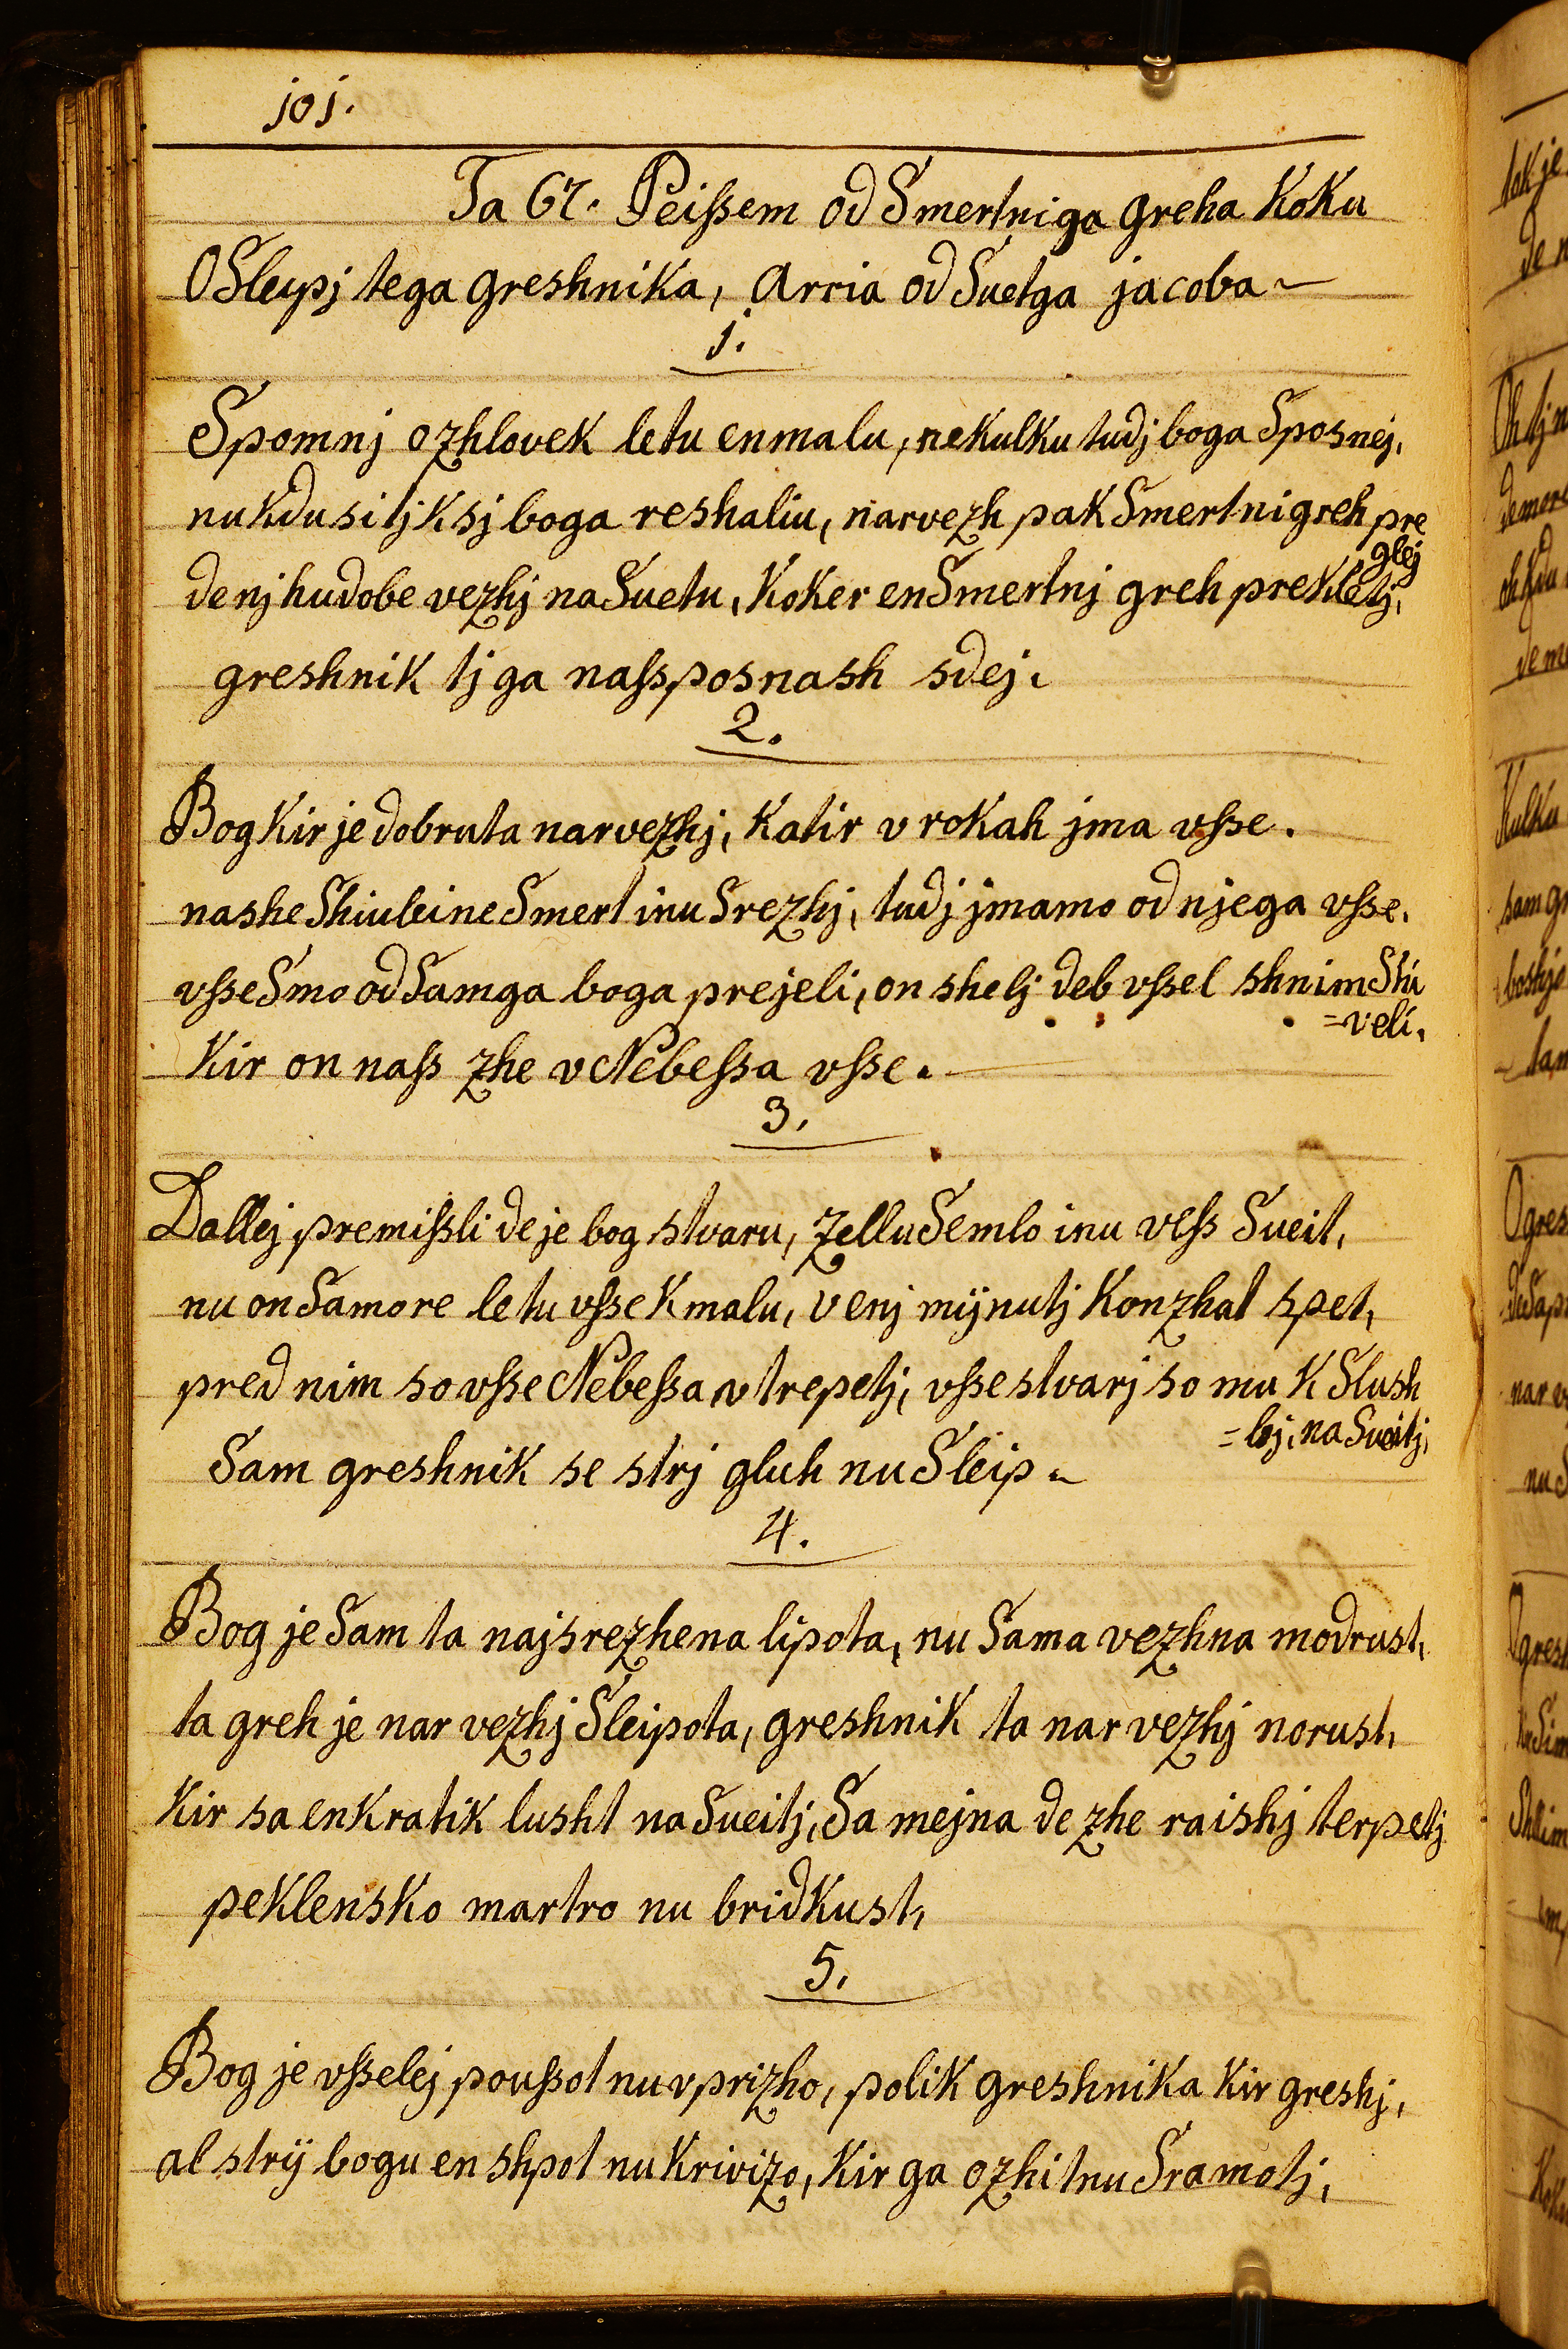 joj.
Ta 67. Peißem od Smertniga greha Koku
OSleypj tega greshnika, Arria od Suetga jacoba
1.
Spomnj ozhlovek letu enmalu, nekulku tudj boga Sposnej,
nu kdu si tj k sj boga reshaliu, narvezh pak Smertni greh pre
glej
de nj hudobe vezhj na Suetu, Koker en Smertnj greh prekletj,
greshnik tj ga naß posnash sdej.
2.
Bog Kir je dobruta narvezhj, Katir v rokah jma vße.
nashe Shiuleine Smert inu Srezhj, tudj jmamo od njega vße.
vße Smo od Samga boga prejeli, on shelj deb vßel shnim Shi
=veli,
Kir on naß zhe v Nebeßa vße.
3.
Dallej premißli de je bog stvaru, zellu Semlo inu veß Sueit,
nu on Samore letu vße K malu, v enj mijnutj Konzhat spet,
pred nim so vße Nebeßa v trepetj, vße stvarj so mu K Slush
=bj, na Sueitj,
Sam greshnik se strj gluh nu Sleip.
4.
Bog je Sam ta najsrezhena lipota, nu Sama vezhna modrust,
ta greh je nar vezhj Sleipota, greshnik ta nar vezhj norust,
Kir sa en Kratik lusht na Sueitj, Sa mejna de zhe raishj terpetj
peklensko martro nu bridkust,
5.
Bog je vßelej poußot nu vprizho, polik greshnika Kir greshj,
al strij bogu en shpot nu Krivizo, Kir ga ozhitnu Sramotj,